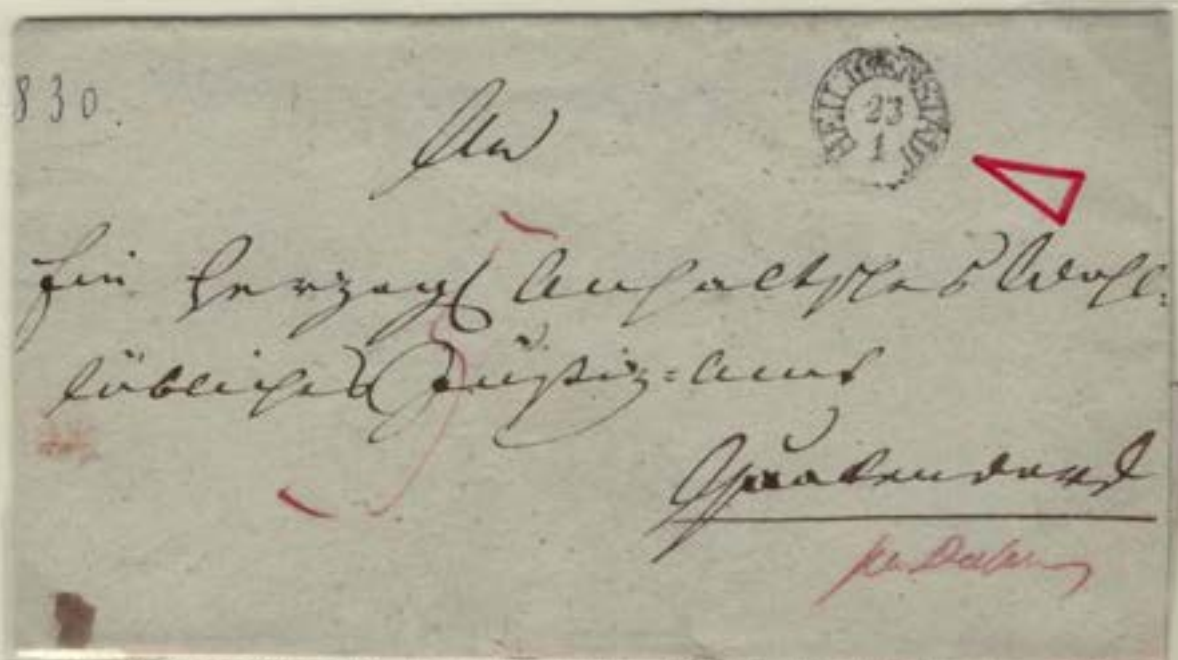 830.
HEILIGENSTADT
23
1
An
Ein Herzogl Anhaltsches Wohl=
löbliches Justiz=Amt